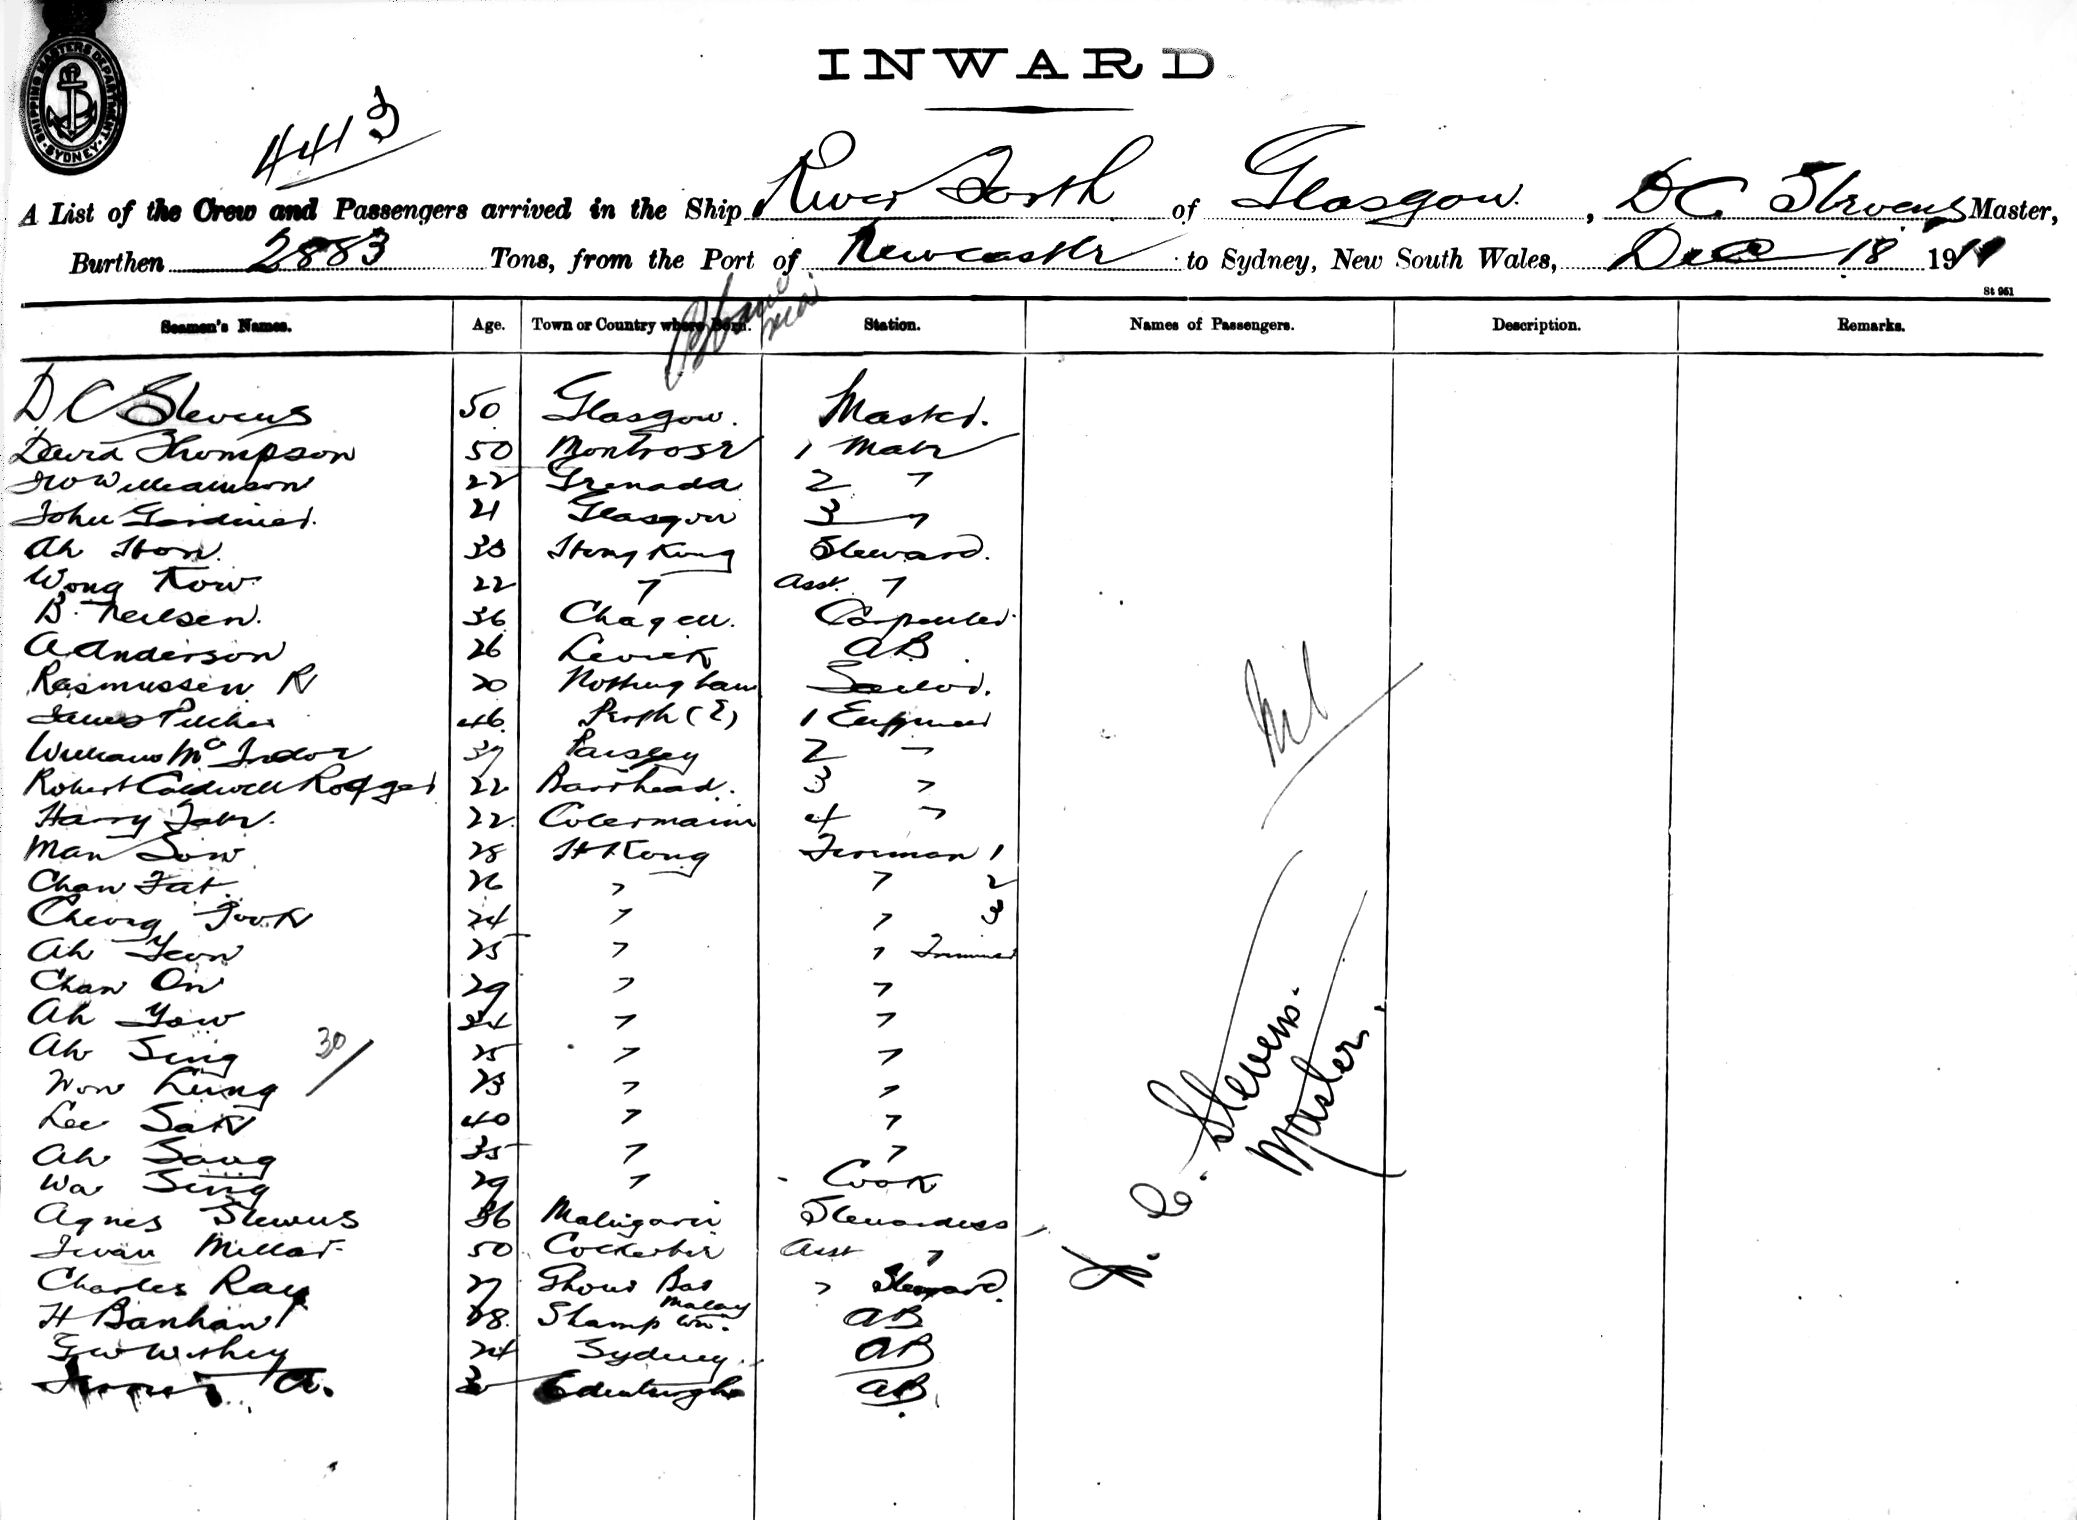 INWARD
SHIPPING MASTERS DEPARTMENT SYDNEY
A List of the Crew and Passengers arrived in the Ship River Forth of Glasgow, D C Stevens Master,
Burthen 2883 Tons, from the Port of Newcastle to Sydney, New South Wales, Dec 18 1911
St 951
Seamen's Names. Age. Town or Country where Born. Station. Names of Passengers. Description. Remarks.
D C Stevens 50 Glasgow. Master.
David Thompson 50 Montrose 1 Mate
Williamson 22 Grenada 2 "
John Gardiner. 21 Glasgow 3 "
Ah Hon. 38 Hong Kong Steward.
Wong Kow 22 " Asst. "
B. Neilsen. 36 Carpenter
A Anderson 26 AB
Rasmussen R 20 Nottingham Sailor.
James 46 Perth 1 Engineer
William Mc 37 Paisley 2 "
Robert Caldwell Rodger 22 Barrhead. 3 "
Harry 22 4 "
Man Sow 28 H Kong Fireman 1
Chan Fat 26 " " 2
Cheong Fook 24 " " 3
Ah Yeon 25 " " Trimmer
Chan On 29 " "
Ah Yow 24 " "
Ah Sing 25 " "
30/
Won Leung 23 " "
Lee Sak 40 " "
Ah Sang 35 " "
Wa Sing 29 " Cook
Agnes Stevens 36 Stewardess
Millar 50 Asst "
Charles Ray 27 " Steward.
H Banham AB
24 Sydney. AB
A. Edinburgh AB
Nil
D. C. Stevens.
Master.